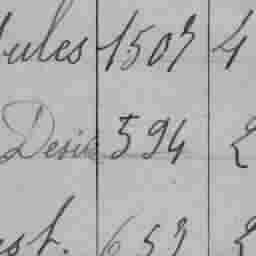 ules 1507 4
Desir 594 2
st. 657 2